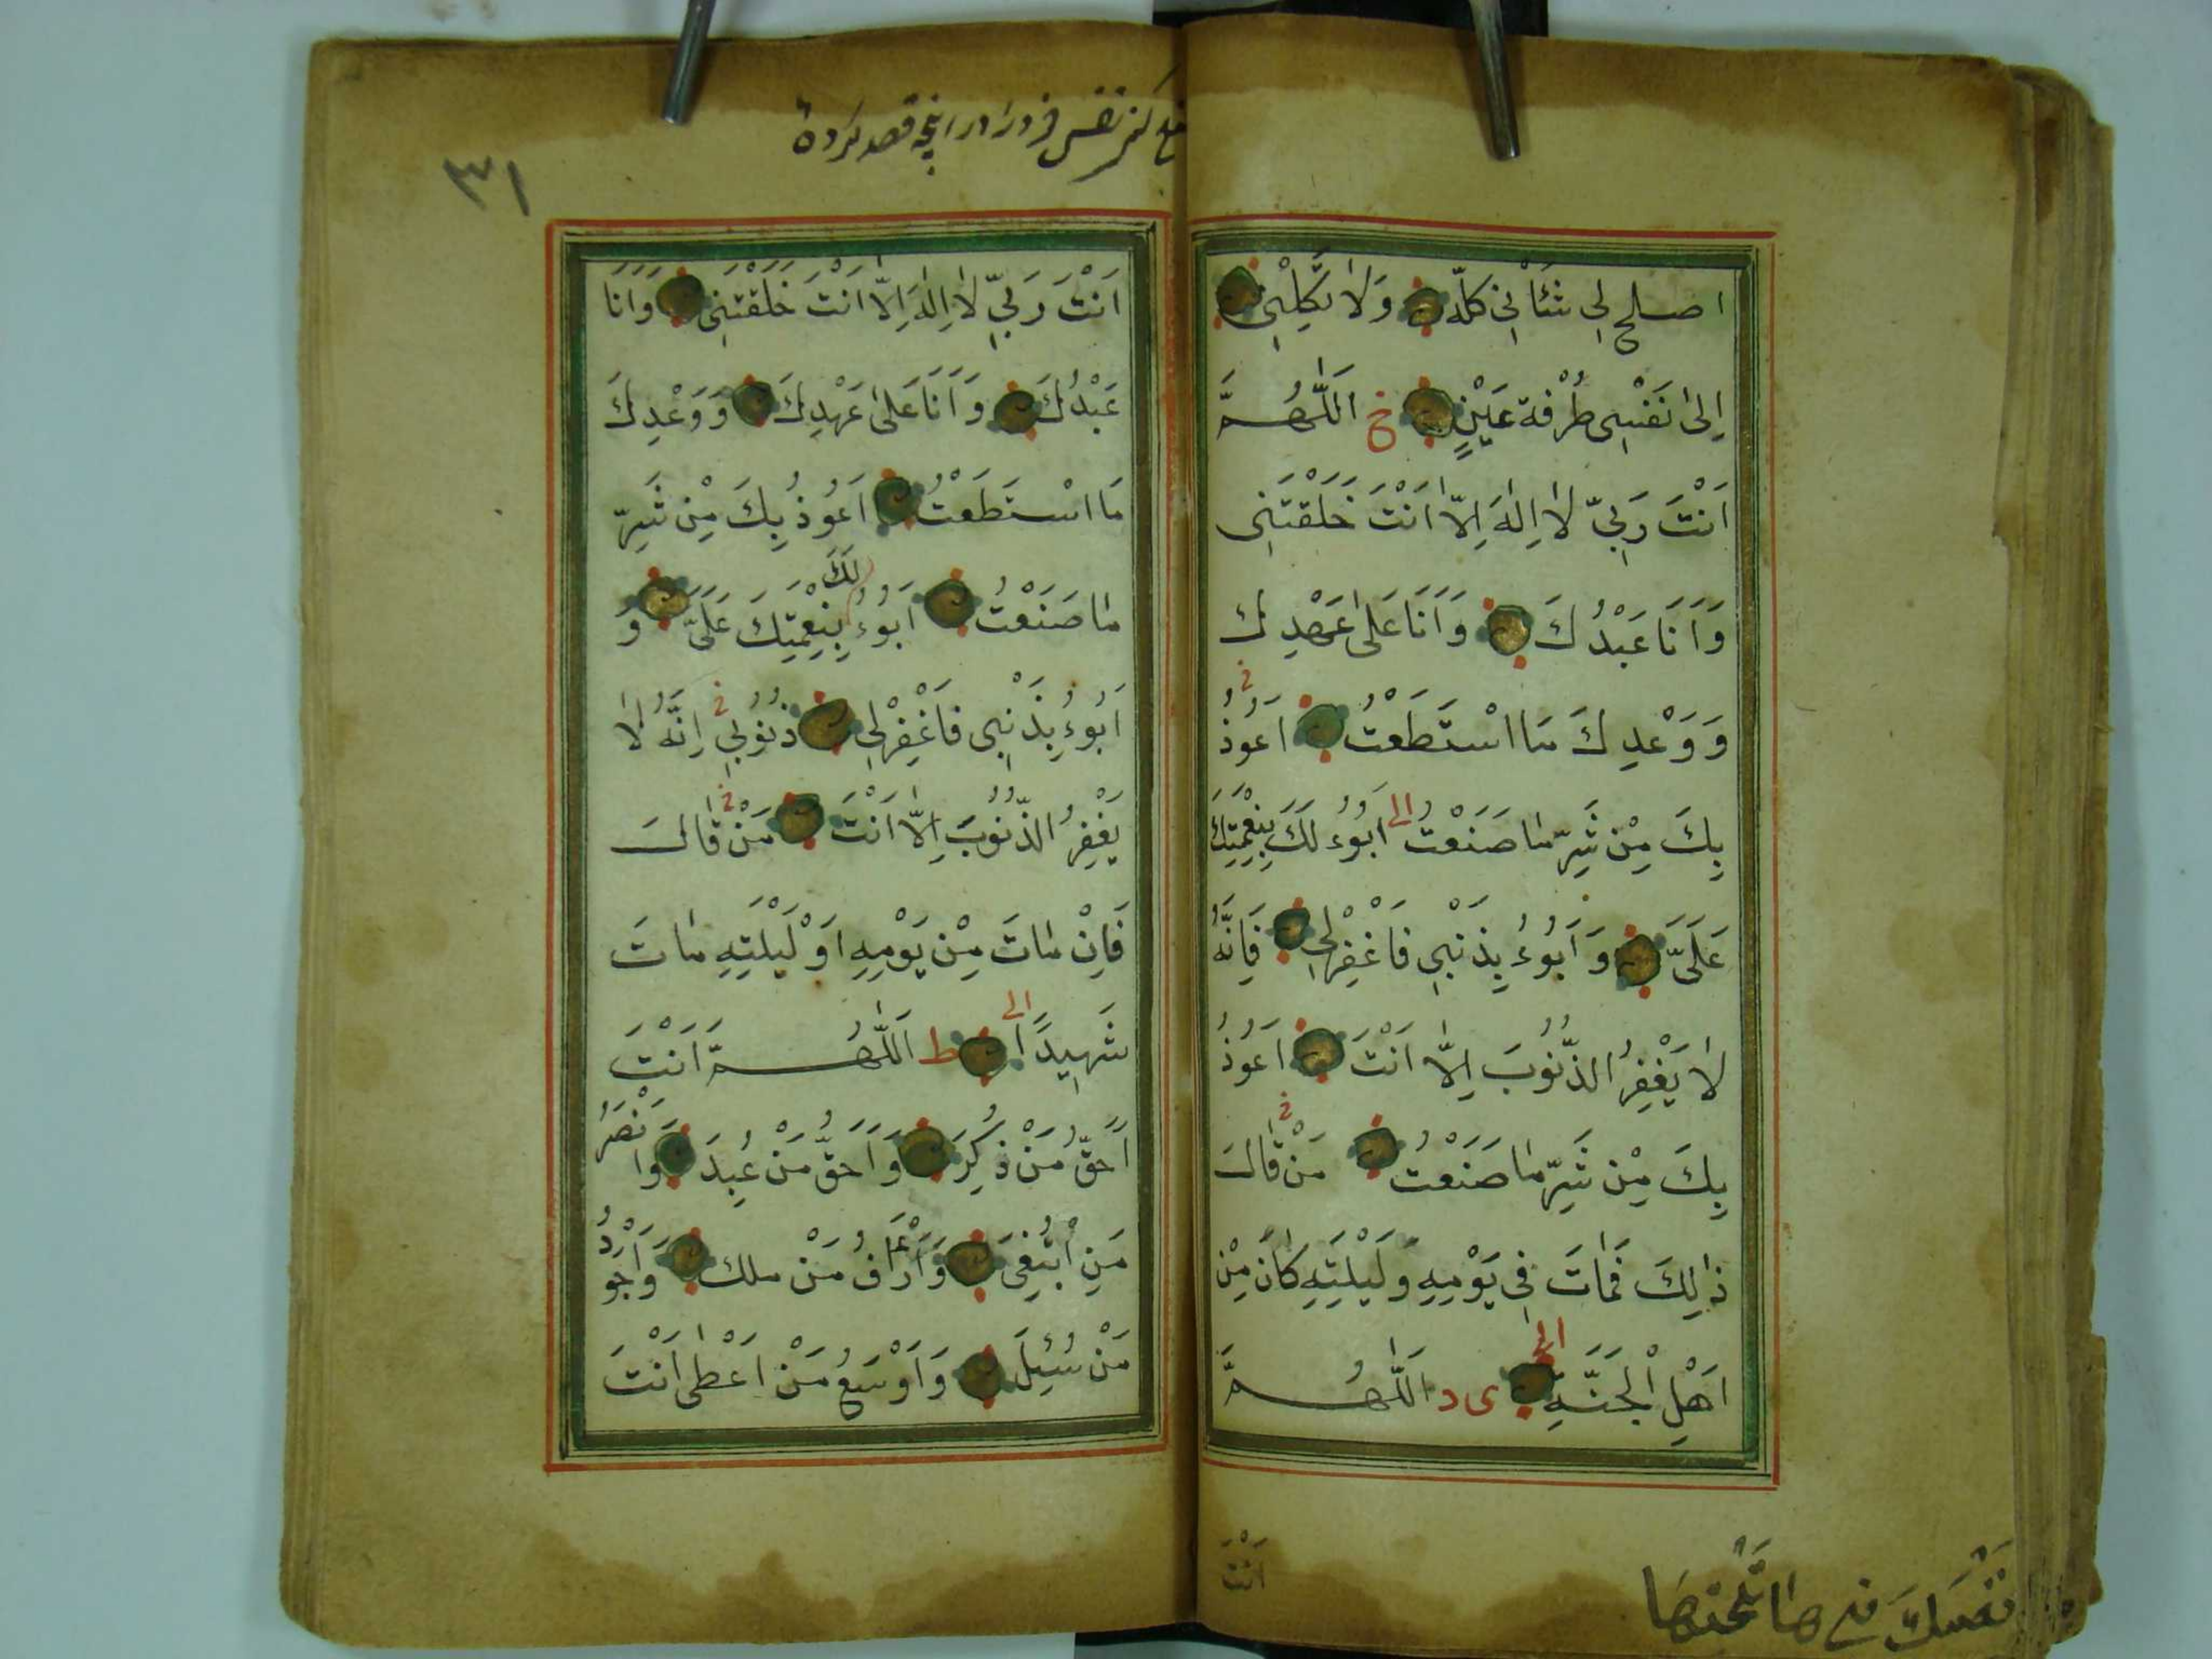 اصلح لِي شَأْنِي كلّه وَلَا تَكِلْنِي
اِلىٰ نَفْسِى طُرْفة عَيْنٍ خ اَللّٰهُمَّ
اَنْتَ رَبِّي لَا اِلٰهَ اِلَّا اَنْتَ خَلَقْتَنِى
وَاَنَا عَبْدُكَ وَاَنَا عَلىٰ عَهْدِك
وَوَعْدِكَ مَا اسْتَطَعْتُ اَعُوْذُ
بِكَ مِنْ شَرِّ مَا صَنَعْتُ الى اَبُوْءُ لَكَ بِنِعْمَتِكَ
عَلَىَّ وَاَبُوْءُ بِذَنْبِي فَاغْفِرْلِي فَاِنَّهُ
لَا يَغْفِرُ الذُّنُوْبَ اِلَّا اَنْتَ اَعُوْذُ
بِكَ مِنْ شَرِّ مَا صَنَعْتُ مَنْ قَالَ
ذٰلِكَ فَمَاتَ فِي يَوْمِهٖ وَلَيْلَتِهٖ كَانَ مِنْ
اَهْلِ الْجَنَّةِ الى ى د اَللّٰهُمَّ
اَنْتَ
نَفْسَكَ
٣١
كنز نفس قصد كرده
اَنْتَ رَبِّي لَا اِلٰهَ اِلَّا اَنْتَ خَلَقْتَنِى وَاَنَا
عَبْدُكَ وَاَنَا عَلىٰ عَهْدِكَ وَوَعْدِكَ
مَا اسْتَطَعْتُ اَعُوْذُ بِكَ مِنْ شَرِّ
مَا صَنَعْتُ اَبُوْءُ لَكَ بِنِعْمَتِكَ عَلَىَّ وَ
اَبُوْءُ بِذَنْبِى فَاغْفِرْلِي ذُنُوْبِي اِنَّهُ لَا
يَغْفِرُ الذُّنُوْبَ اِلَّا اَنْتَ مَنْ قَالَ
فَاِنْ مَاتَ مِنْ يَوْمِهٖ اَوْ لَيْلَتِهٖ مَاتَ
شَهِيدًا الى ط اَللّٰهُمَّ اَنْتَ
اَحَقُّ مَنْ ذُكِرَ وَاَحَقُّ مَنْ عُبِدَ وَاَنْصَرُ
مَنِ ابْتُغِىَ وَاَرْاَفُ مَنْ ملك وَاَجْوَدُ
مَنْ سُئِلَ وَاَوْسَعُ مَنْ اَعْطٰى اَنْتَ